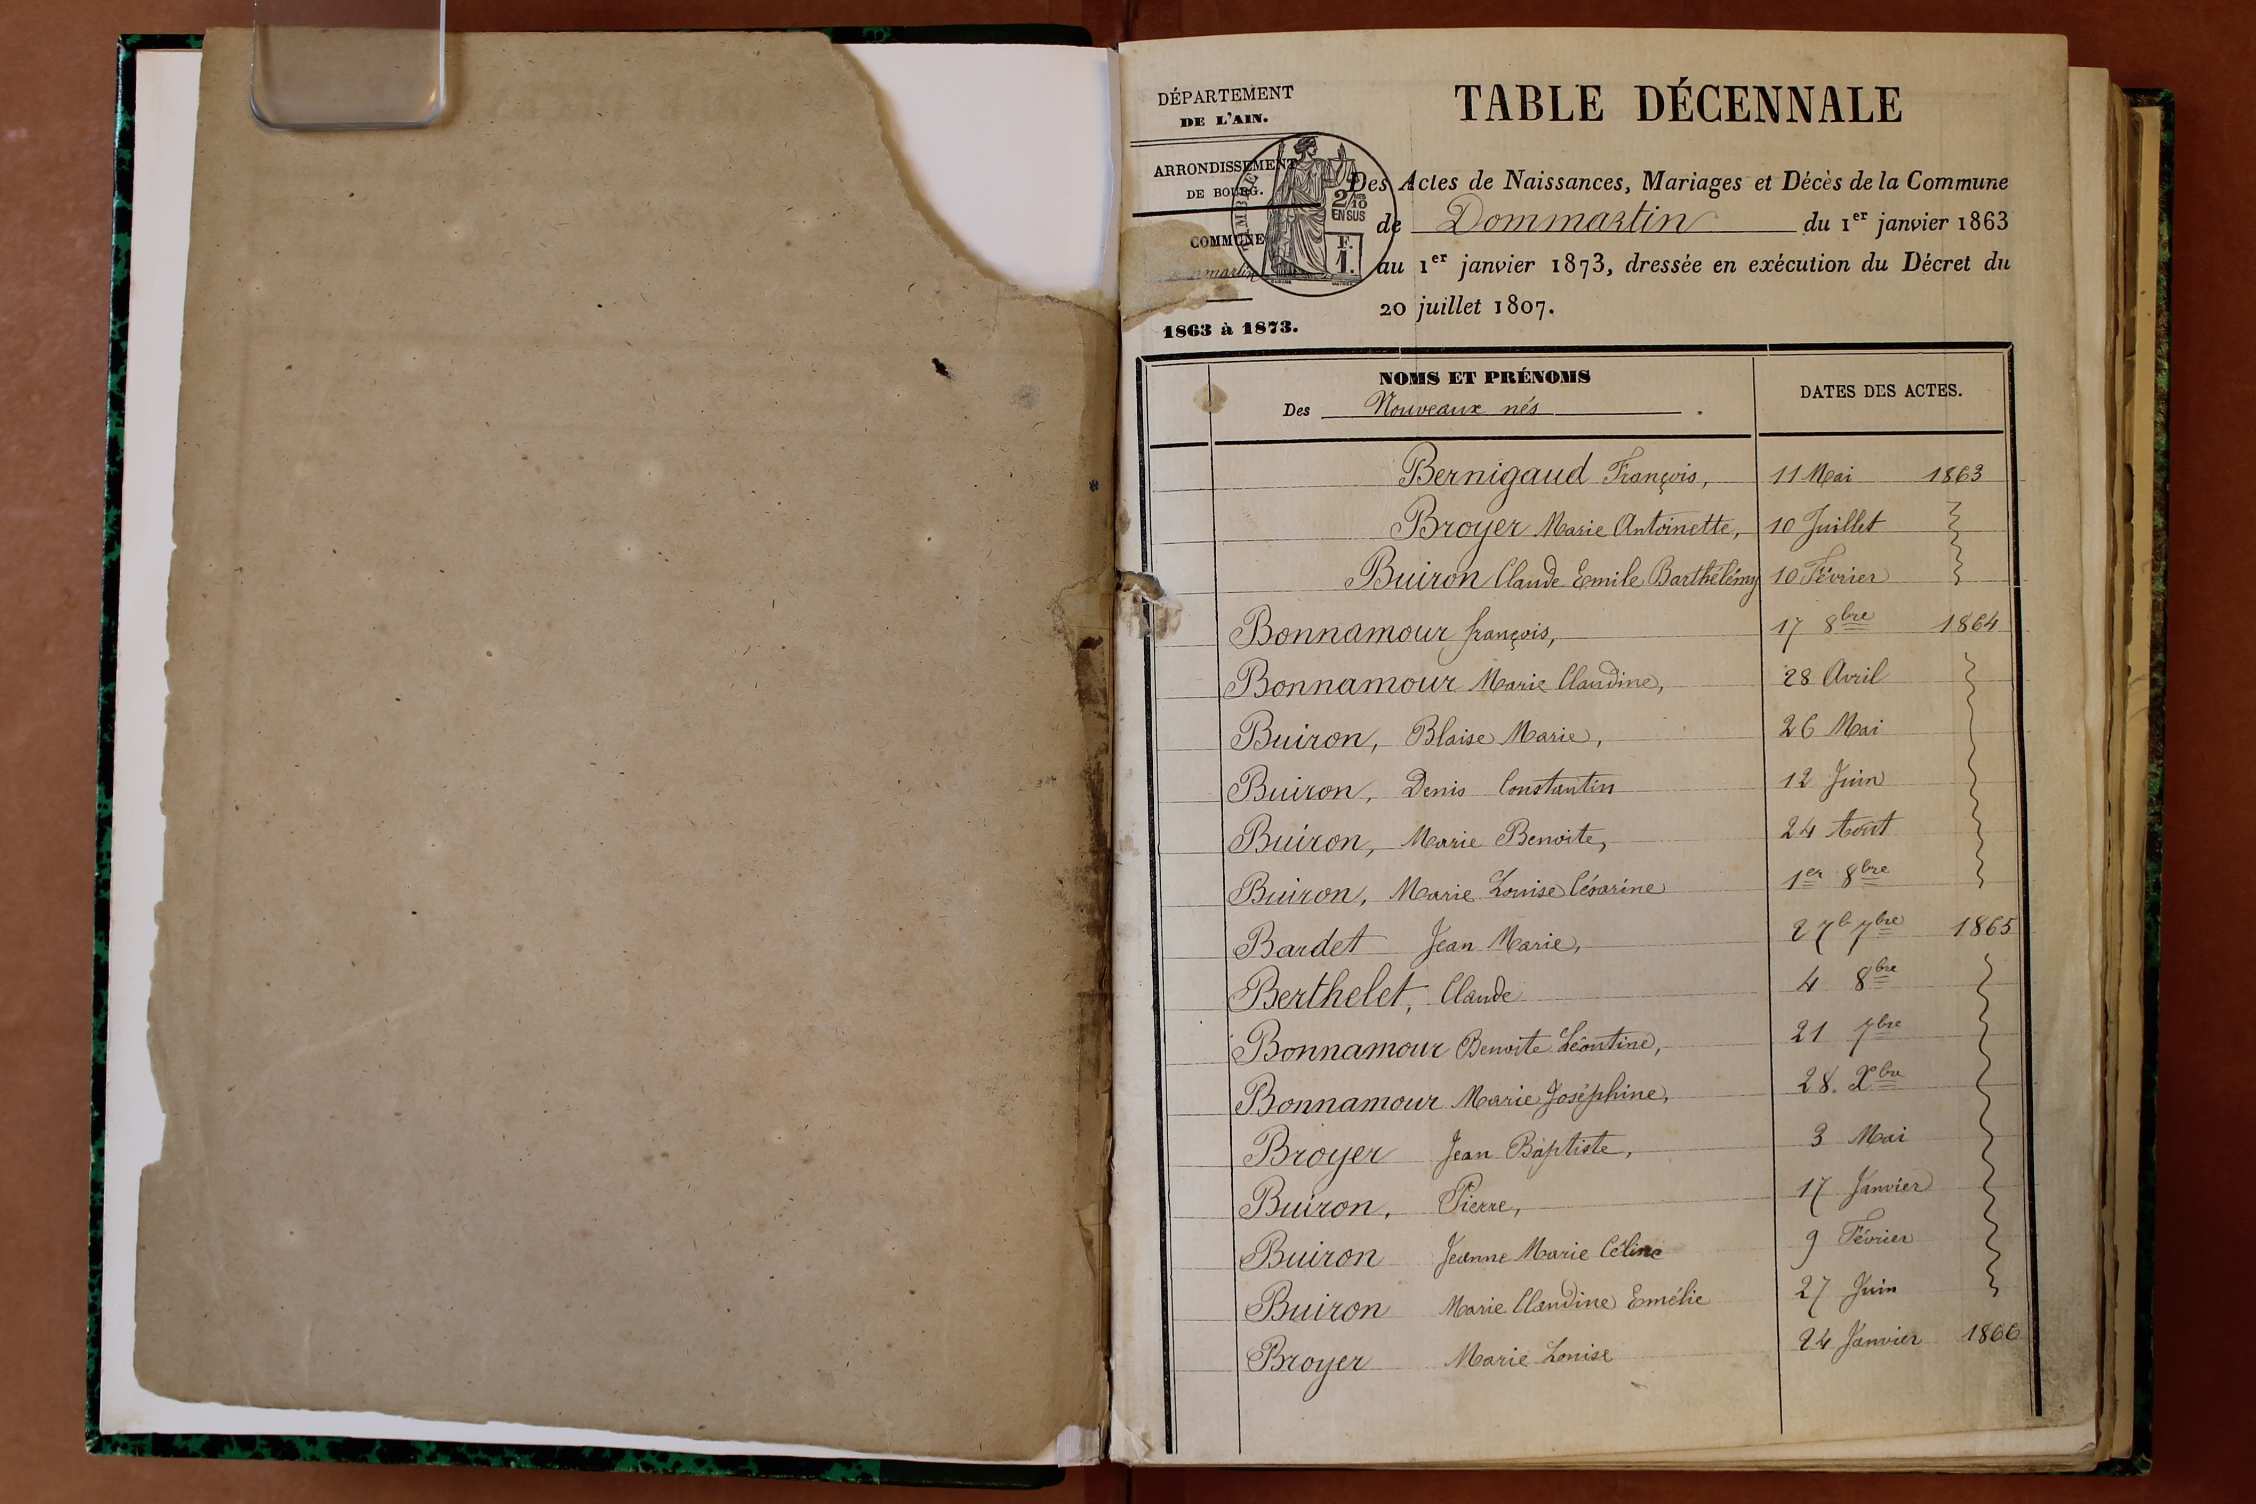 DÉPARTEMENT
DE L'AIN.
ARRONDISSEMENT
DE BOURG.
COMMUNE
1863 à 1873.
2/10
EN SUS
F.
1.
TABLE DÉCENNALE
Des Actes de Naissances, Mariages et Décès de la Commune
de Dommartin du 1er janvier 1863
au 1er janvier 1873, dressée en exécution du Décret du
20 juillet 1807.
NOMS ET PRÉNOMS
Des Nouveaux nés.
DATES DES ACTES.
Bernigaud François, 11 Mai 1863
Broyer Marie Antoinette, 10 Juillet
Buiron Claude Emile Barthélémy 10 Février
Bonnamour françois, 17 8bre 1864
Bonnamour Marie Claudine, 28 Avril
Buiron, Blaise Marie, 26 Mai
Buiron, Denis Constantin 12 Juin
Buiron, Marie Benoite, 24 Aout
Buiron, Marie Louise Césarine 1er 8bre
Bardet Jean Marie, 27 7bre 1865
Berthelet, Claude 4 8bre
Bonnamour Benoite Léontine, 21 7bre
Bonnamour Marie Joséphine, 28. Xbre
Broyer Jean Baptiste, 3 Mai
Buiron, Pierre, 17 Janvier
Buiron Jeanne Marie Céline 9 Février
Buiron Marie Claudine Emélie 27 Juin
Broyer Marie Louise 24 Janvier 1866